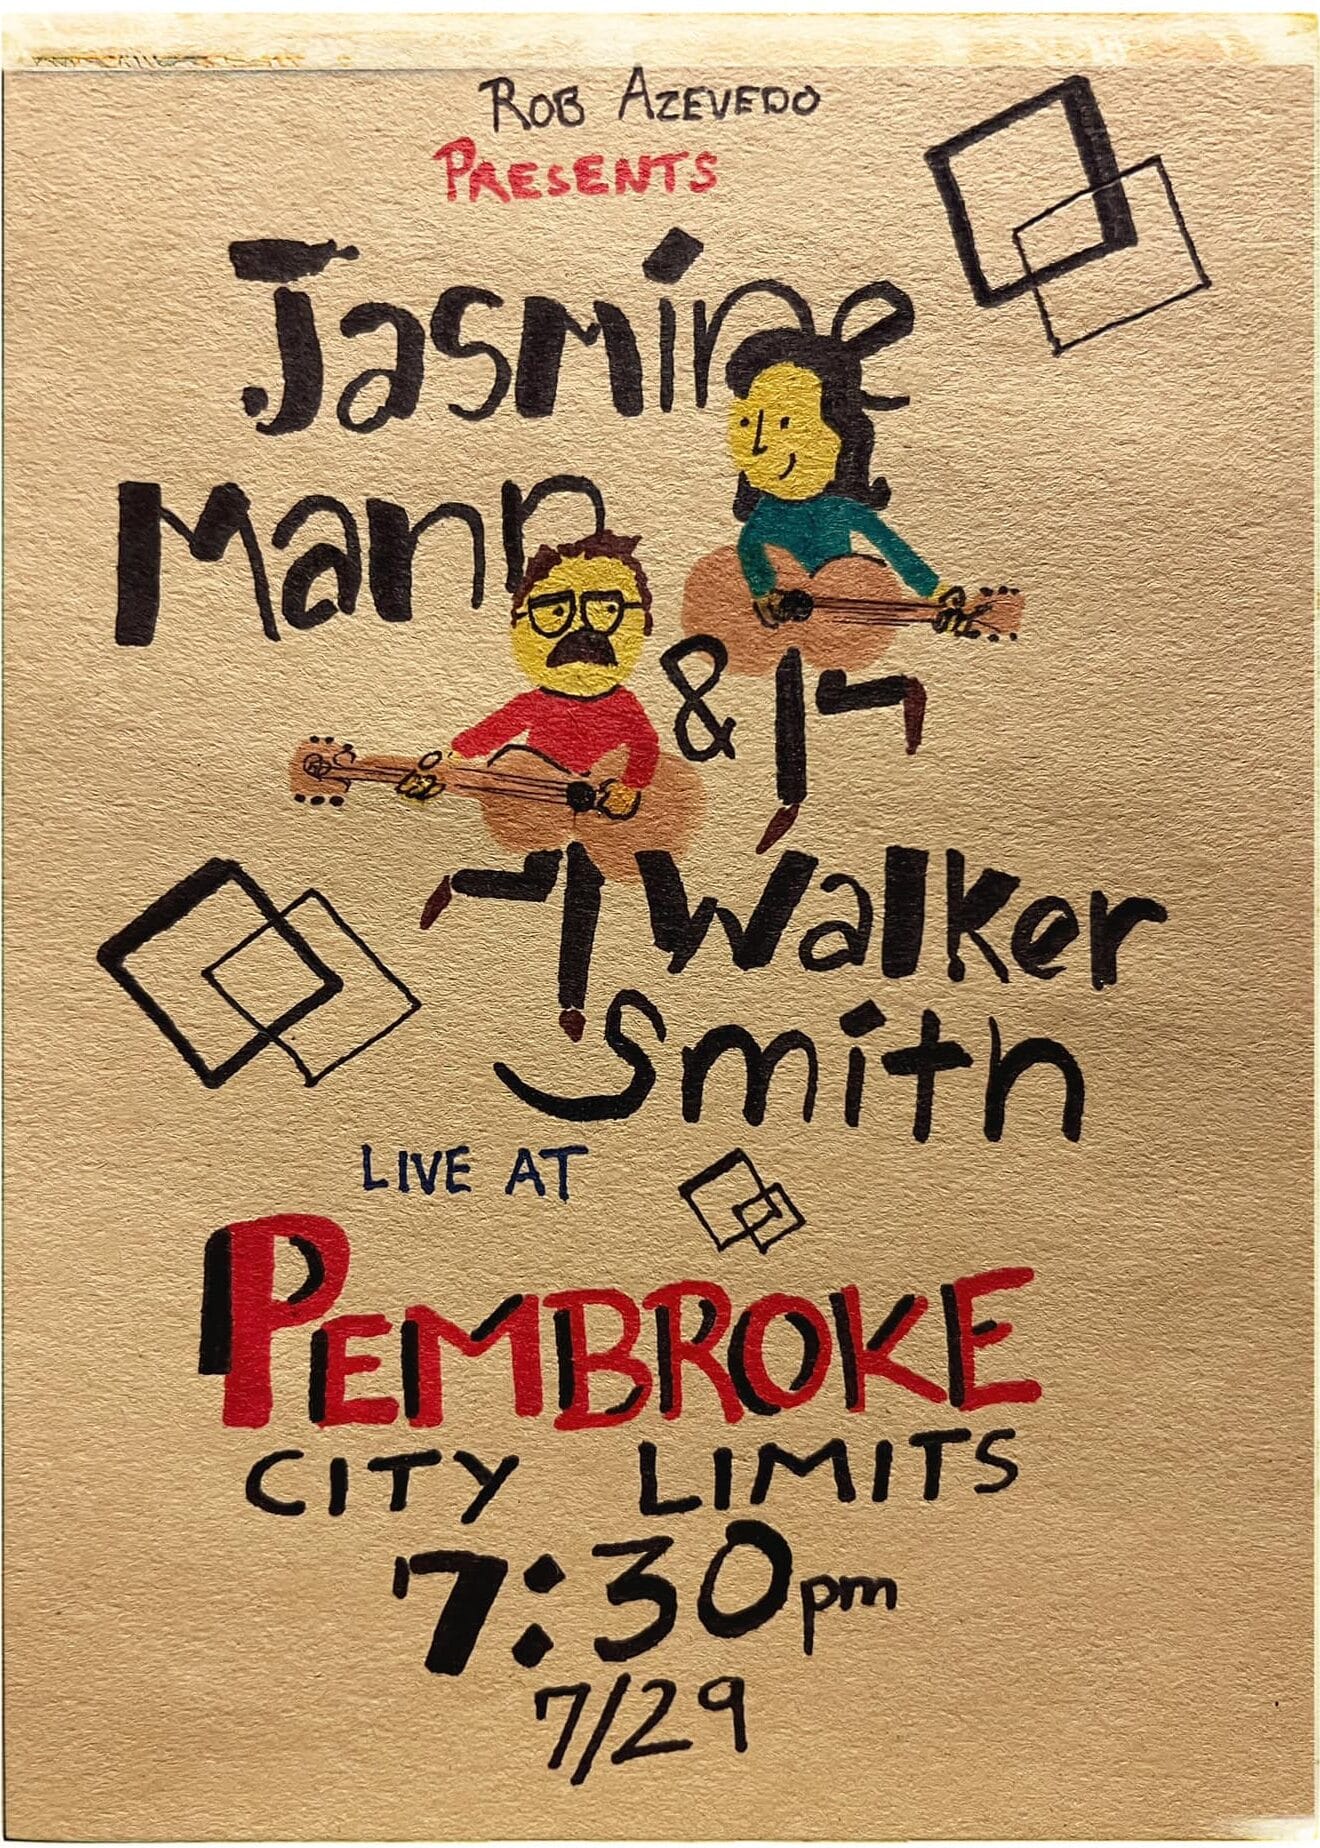 ROB AZEVEDO
PRESENTS
Jasmine
Mann
&
Walker
Smith
LIVE AT
PEMBROKE
CITY LIMITS
7:30pm
7/29